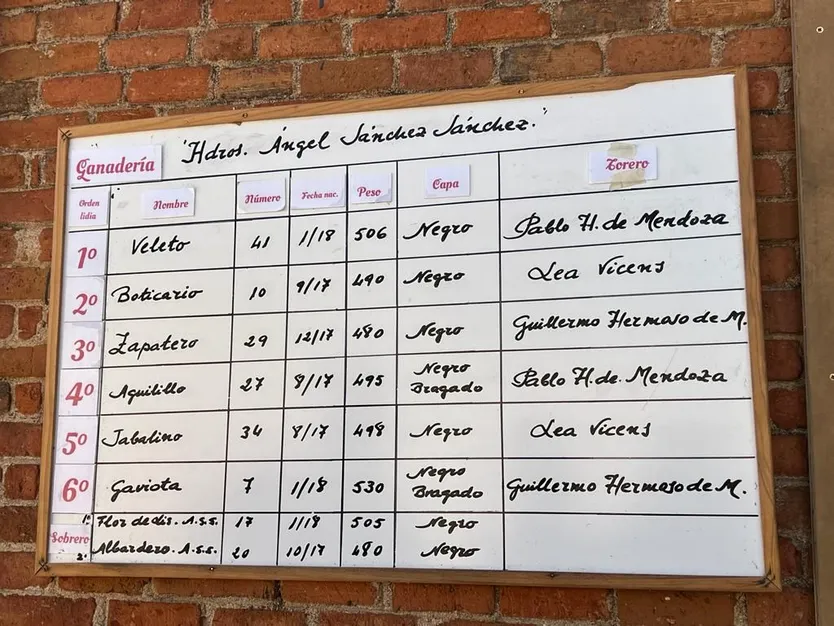 Ganadería "Hdros. Ángel Sánchez Sánchez."
Orden lidia Nombre Número Fecha nac. Peso Capa Torero
1º Veleto 41 1/18 506 Negro Pablo H. de Mendoza
2º Boticario 10 9/17 490 Negro Lea Vicens
3º Zapatero 29 12/17 480 Negro Guillermo Hermoso de M.
4º Aguilillo 27 8/17 495 Negro Bragado Pablo H. de. Mendoza
5º Jabalino 34 8/17 498 Negro Lea Vicens
6º Gaviota 7 1/18 530 Negro Bragado Guillermo Hermoso de M.
Sobrero 1º Flor de lis. A.S.S. 17 1/18 505 Negro
2º Albardero. A.S.S. 20 10/17 480 Negro